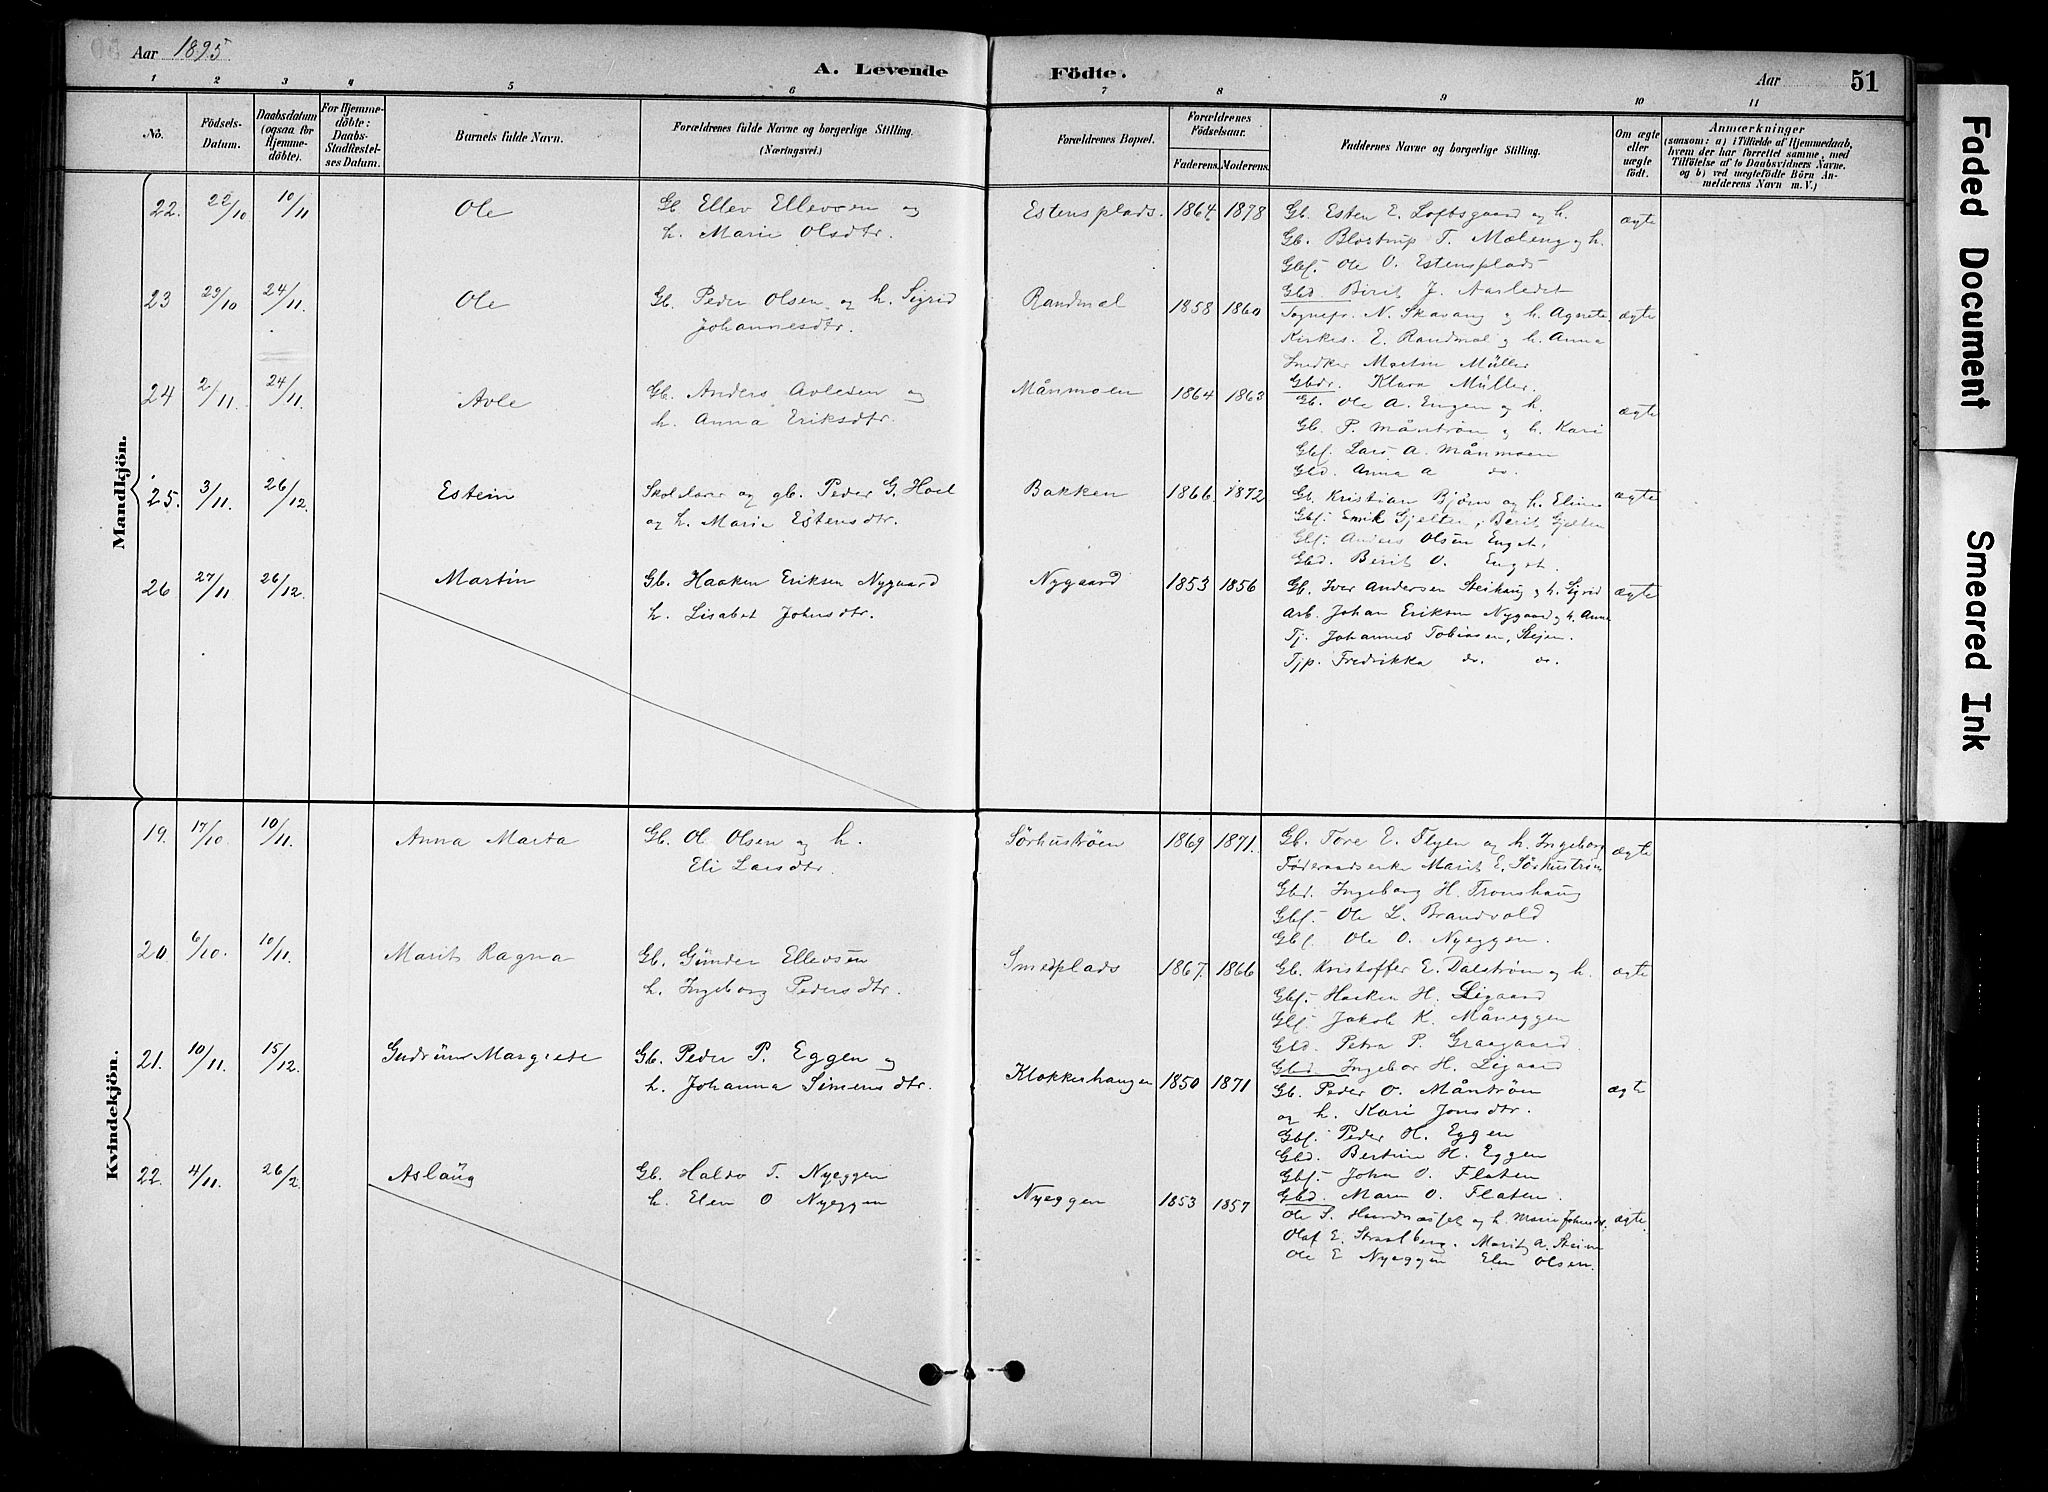 Aar 1895
A. Levende Födte.
Aar 51
1 2 3 4 5 6 7 8 9 10 11
No. Födsels-Datum. Daabsdatum (ogsaa for Hjemme-döbte). For Hjemme-döbte: Daabs-Stadfæstel-ses Datum. Barnets fulde Navn. Forældrenes fulde Navne og borgerlige Stilling. (Næringsvei.) Forældrenes Bopæl. Forældrenes Födselsaar. Faderens. Moderens. Faddernes Navne og borgerlige Stilling. Om ægte eller uægte födt. Anmærkninger (saasom: a) i Tilfælde af Hjemmedaab, hvem der har forrettet samme, med Tilföielse af to Daabsvidners Navne. og b) ved uægtefödte Börn An-melderens Navn m. V.)
Mandkjön.
22. 22/10 10/11 Ole Gb Ellev Ellevsen og Estensplads. 1864 1878 Gb. Esten E. Loftsgaard og h. ægte
h. Marie Olsdtr. Gb. Blostrup T. Mæleng og h.
Gbf. Ole O. Estensplads
Gbd. Birit J. Aasledet
23 29/10 24/11 Ole Gb. Peder Olsen og h. Sigrid Randmæl 1858 1860 Sognepr. N. Skavang og h. Agnete ægte
Johannesdtr. Kirkes. E. Randmæl og h. Anna
Martin Müller
Gbdr. Klara Müller.
24 2/11. 24/11. Avle Gb. Anders Avlesen og Månmoen 1864 1863 Gb. Ole A. Engen og h. ægte
h. Anna Eriksdtr. Gb. P. Måntrøn og h. Kari
Gbf. Lars A. Månmoen
Gbd. Anna A do.
25. 3/11. 26/12. Estein Skolelærer og gb. Peder G. Hoel Bakken 1866 1872 Gb. Kristian Bjørn og h. Eline ægte
og h. Marie Estensdtr. Gbf. Emik Gjelten, Berit Gjelten
Gbf. Anders Olsen Enget,
Gbd. Berit O. Enget.
26 27/11 26/12. Martin Gb. Haaken Eriksen Nygaard Nygaard 1853 1856 Gb. Iver Andersen Steihaug og h. Sigrid ægte
h. Lisabet Johnsdtr. Arb. Johan Eriksen Nygaard og h. Anna
Tj. Johannes Tobiasen, Steien.
Tjp. Fredrikka do. do.
Kvindekjön.
19. 17/10. 10/11. Anna Marta Gb. Ol. Olsen og h. Sørhustrøen 1869 1871. Gb. Tore E. Flyen og h. Ingeborg ægte
Eli Larsdtr. Føderaadsenke Marit E. Sørhustrøen
Gbd. Ingeborg H. Tronshaug
Gbf. Ole L. Brandvold
Gbf Ole O. Nyeggen.
20. 6/10. 10/11. Marit Ragna Gb. Gunder Ellevsen Smedplads 1867. 1866 Gb. Kristoffer E. Dalstrøm og h. ægte
h. Ingeborg Pedersdtr. Gbf. Haaken H. Ligaard
Gbf. Jakob K. Måneggen
Gbd. Petra P. Graagaard.
Gbd Ingebor H. Ligaard
21. 10/11. 15/12. Gudrun Margrete Gb. Peder P. Eggen og Klokkerhaugen 1850 1871 Gb. Peder O. Måntrøn ægte
h. Johanna Simensdtr. og h. Kari Jonsdtr.
Gbf. Peder H. Eggen
Gbd. Bertine H. Eggen
Gbf. John O. Flaten
Gbd. Maren O. Flaten.
22. 4/11. 26/2. Aslaug Gb. Haldo T. Nyeggen Nyeggen 1853 1857 Ole S. og h. Marie Johnsdt. ægte.
h. Elen O Nyeggen Olaf E. Straalberg. Marit A. Steien
Ole E Nyeggen Elen Olsen.
Faded Document
Smeared Ink